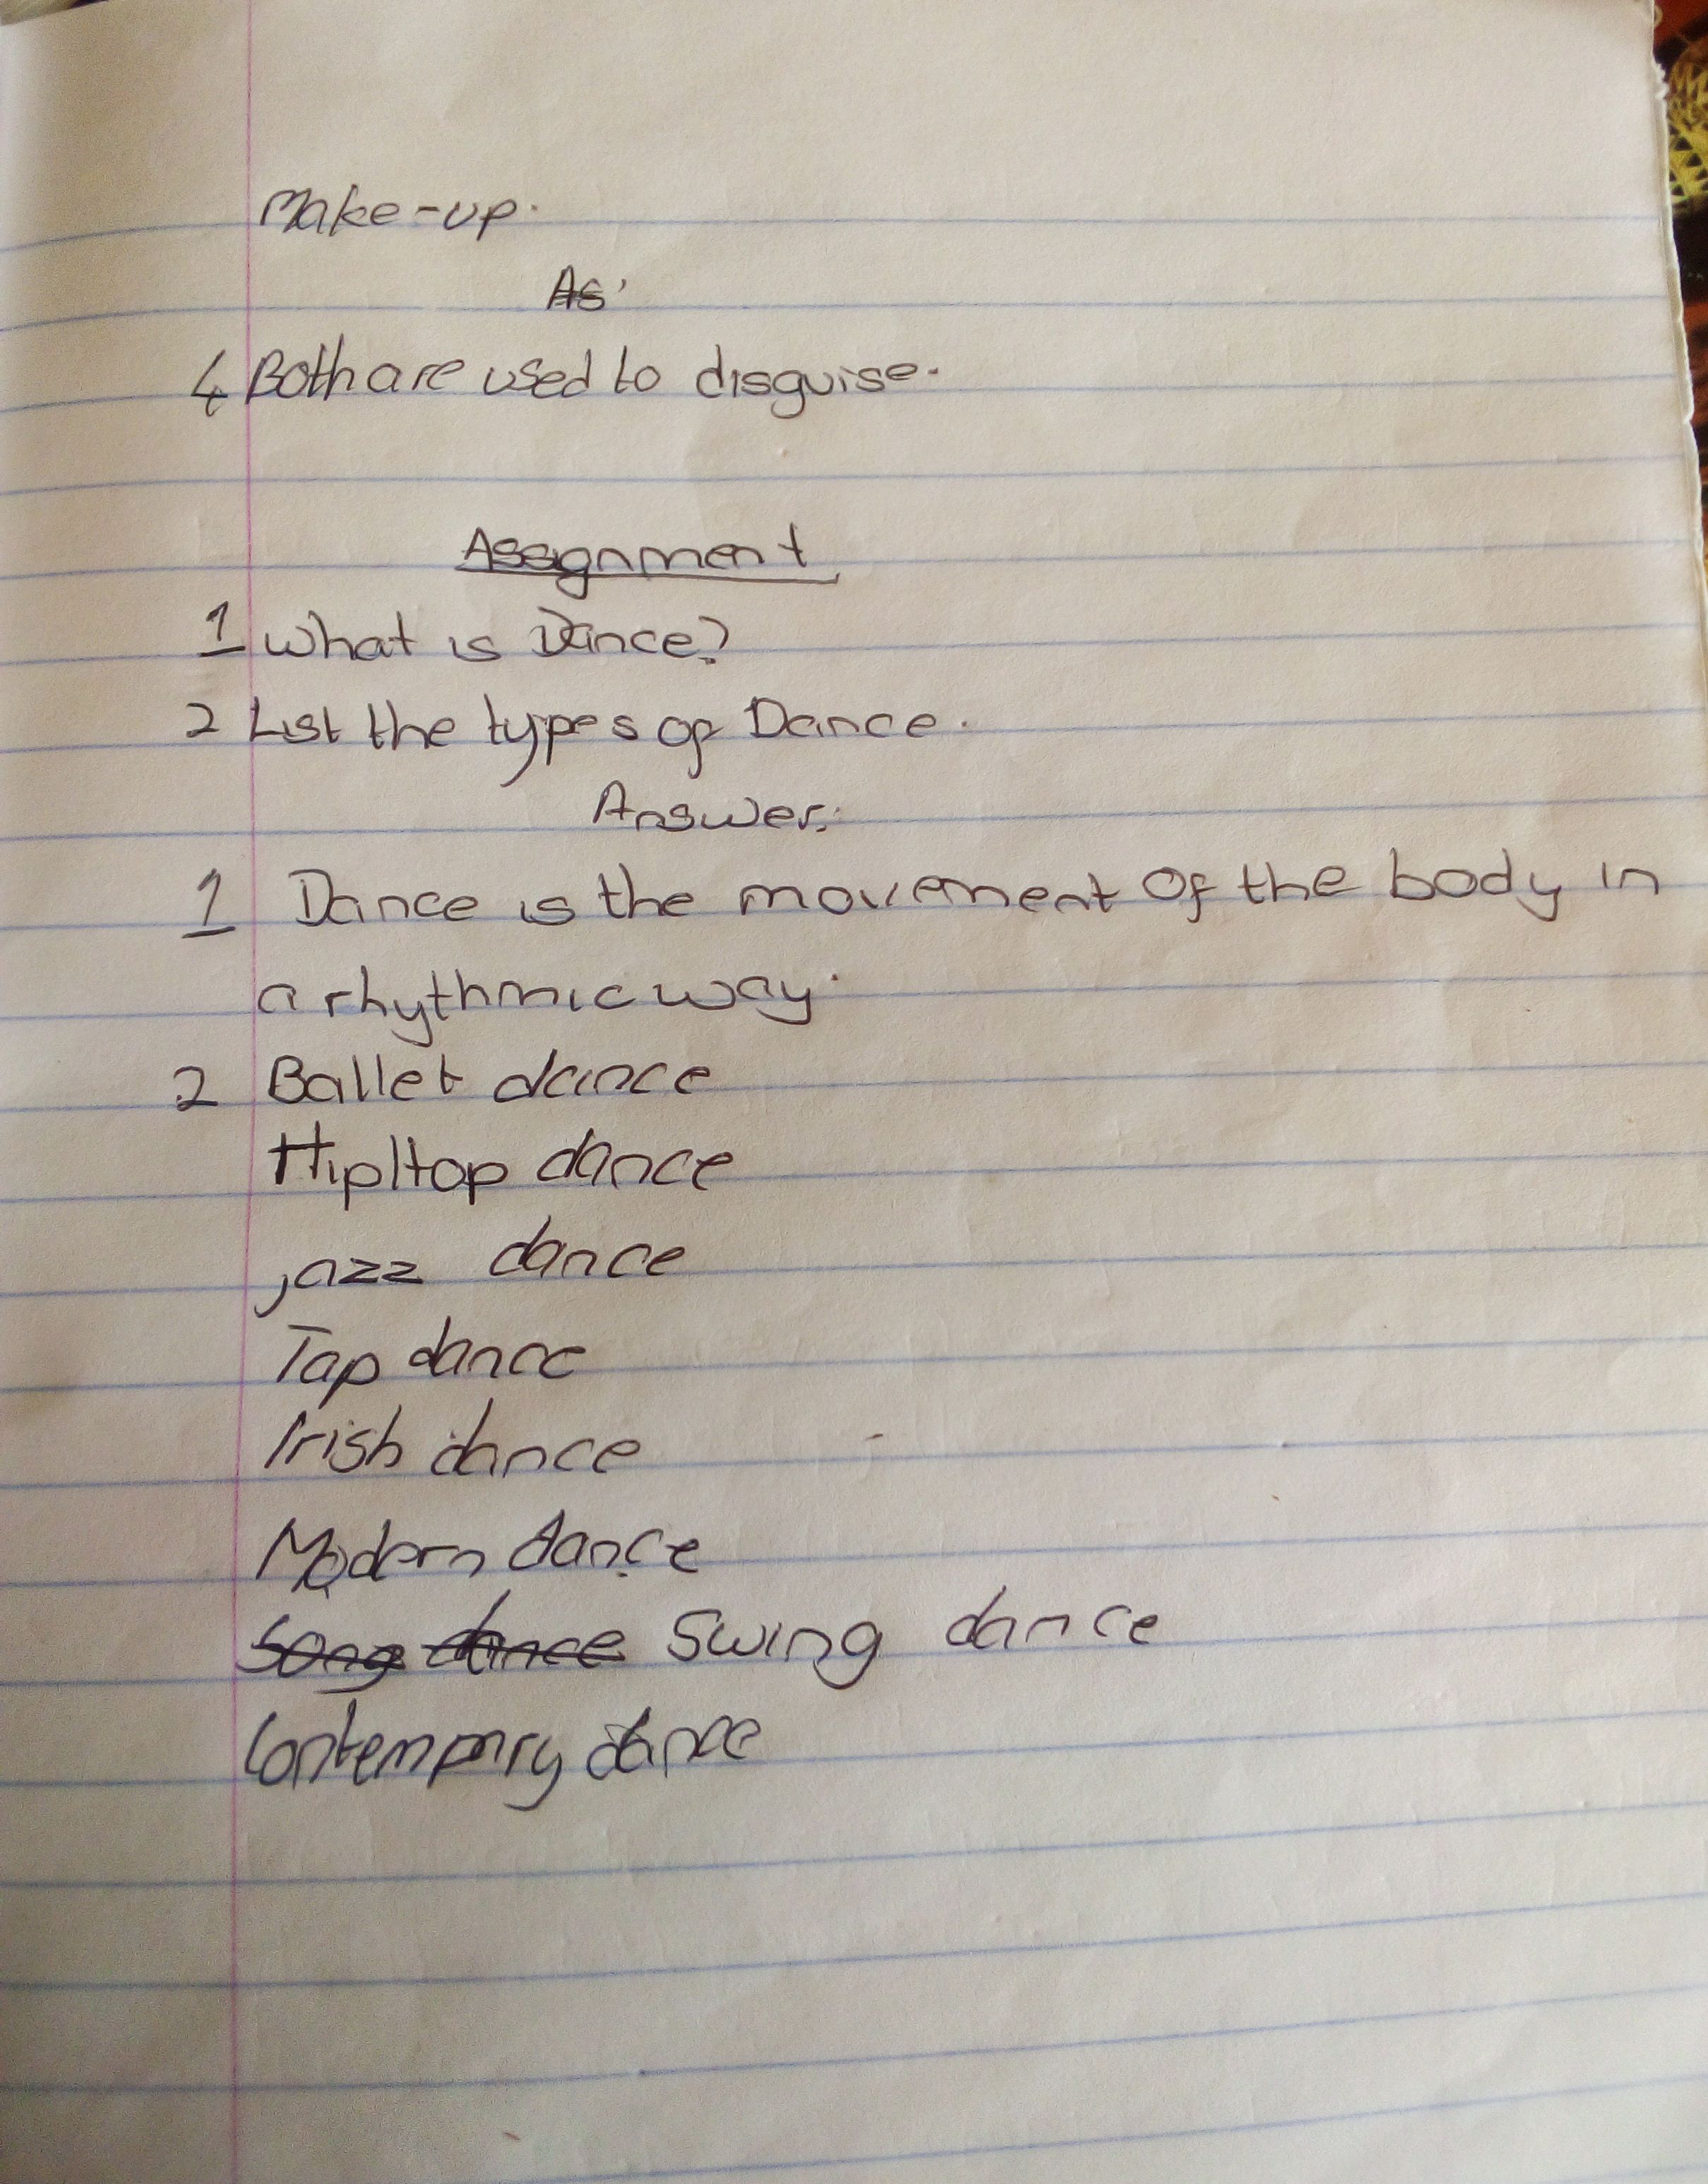 Make-up.
As
4 Both are used to disguise.
Assignment
1 What is Dance?
2 List the types of Dance.
Answer.
1 Dance is the movement of the body in
a rhythmic way.
2 Ballet dance
HipHop dance
jazz dance
Tap dance
Irish dance
Modern dance
Song dance Swing dance
Contemprary dance